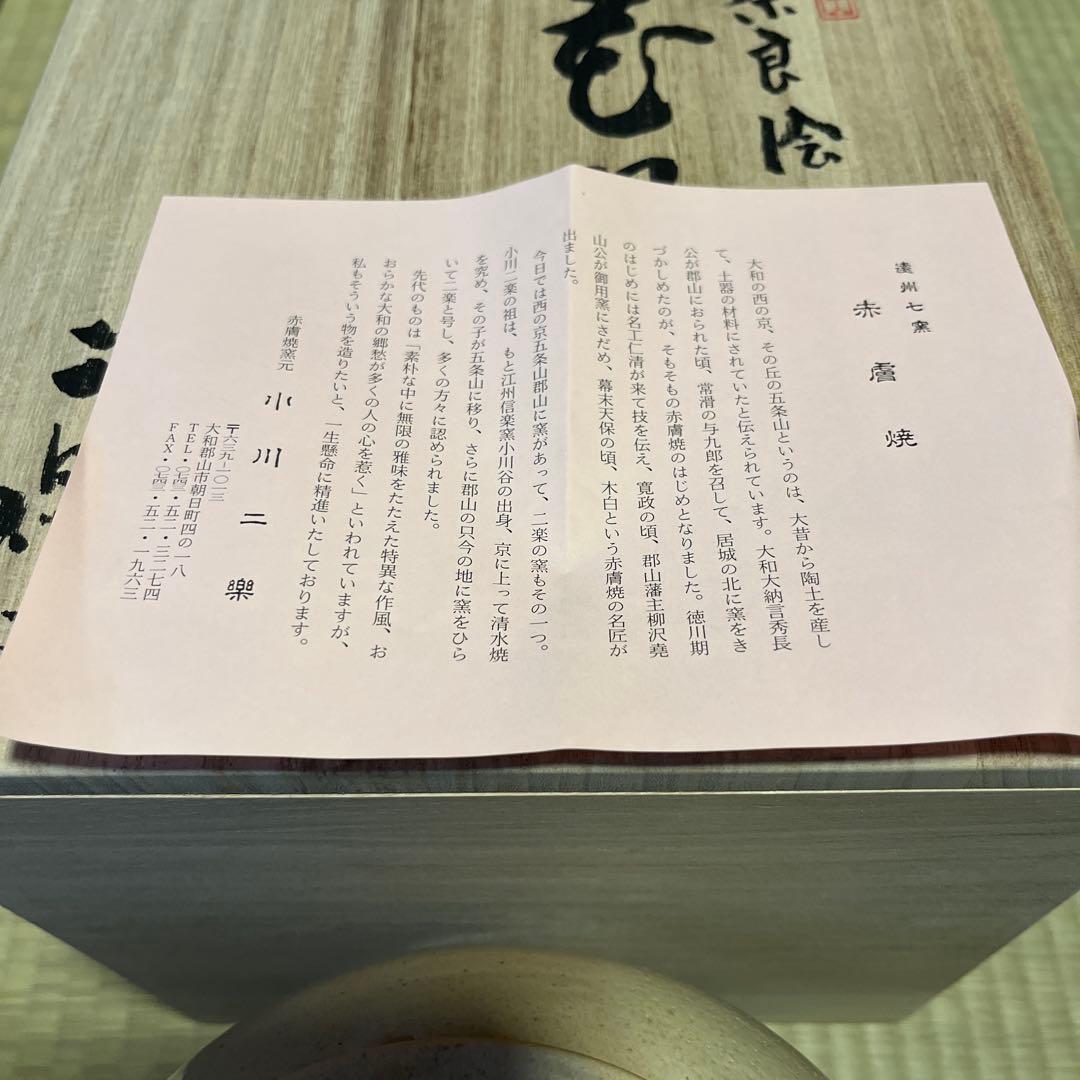 奈良絵
遠州七窯
赤膚焼
大和の西の京、その丘の五条山というのは、大昔から陶土を産し
て、土器の材料にされていたと伝えられています。大和大納言秀長
公が郡山におられた頃、常滑の与九郎を召して、居城の北に窯をき
づかしめたのが、そもそもの赤膚焼のはじめとなりました。徳川期
のはじめには名工仁清が来て技を伝え、寛政の頃、郡山藩主柳沢堯
山公が御用窯にさだめ、幕末天保の頃、木白という赤膚焼の名匠が
出ました。
今日では西の京五条山郡山に窯があって、二楽の窯もその一つ。
小川二楽の祖は、もと江州信楽窯小川谷の出身、京に上って清水焼
を究め、その子が五条山に移り、さらに郡山の只今の地に窯をひら
いて二楽と号し、多くの方々に認められました。
先代のものは「素朴な中に無限の雅味をたたえた特異な作風、お
おらかな大和の郷愁が多くの人の心を惹く」といわれていますが、
私もそういう物を造りたいと、一生懸命に精進いたしております。
赤膚焼窯元 小川二樂
〒六三九-一〇一三
大和郡山市朝日町四の一八
TEL・〇七四三・五二・三二七四
FAX・〇七四三・五二・一九六三